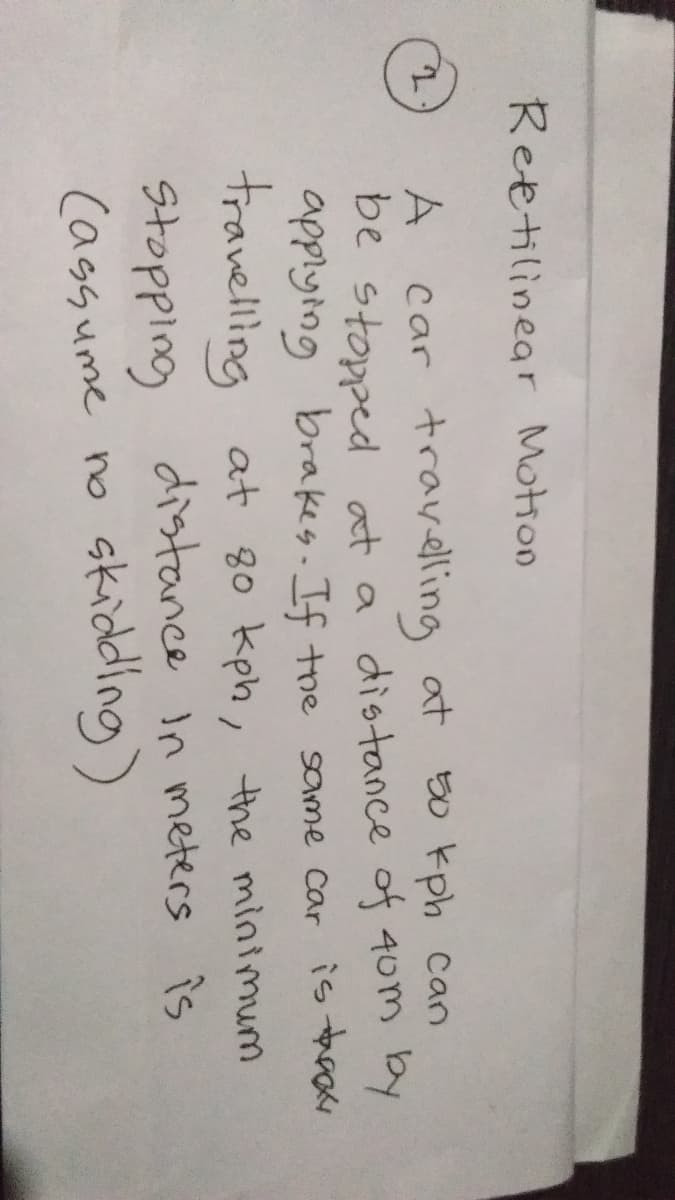 Rectilinear Motion
2. A car travelling at 50 kph can
be stopped at a distance of 40m by
applying brakes. If the same car is
travelling at 80 kph, the minimum
stopping distance in meters is
(assume no skidding)